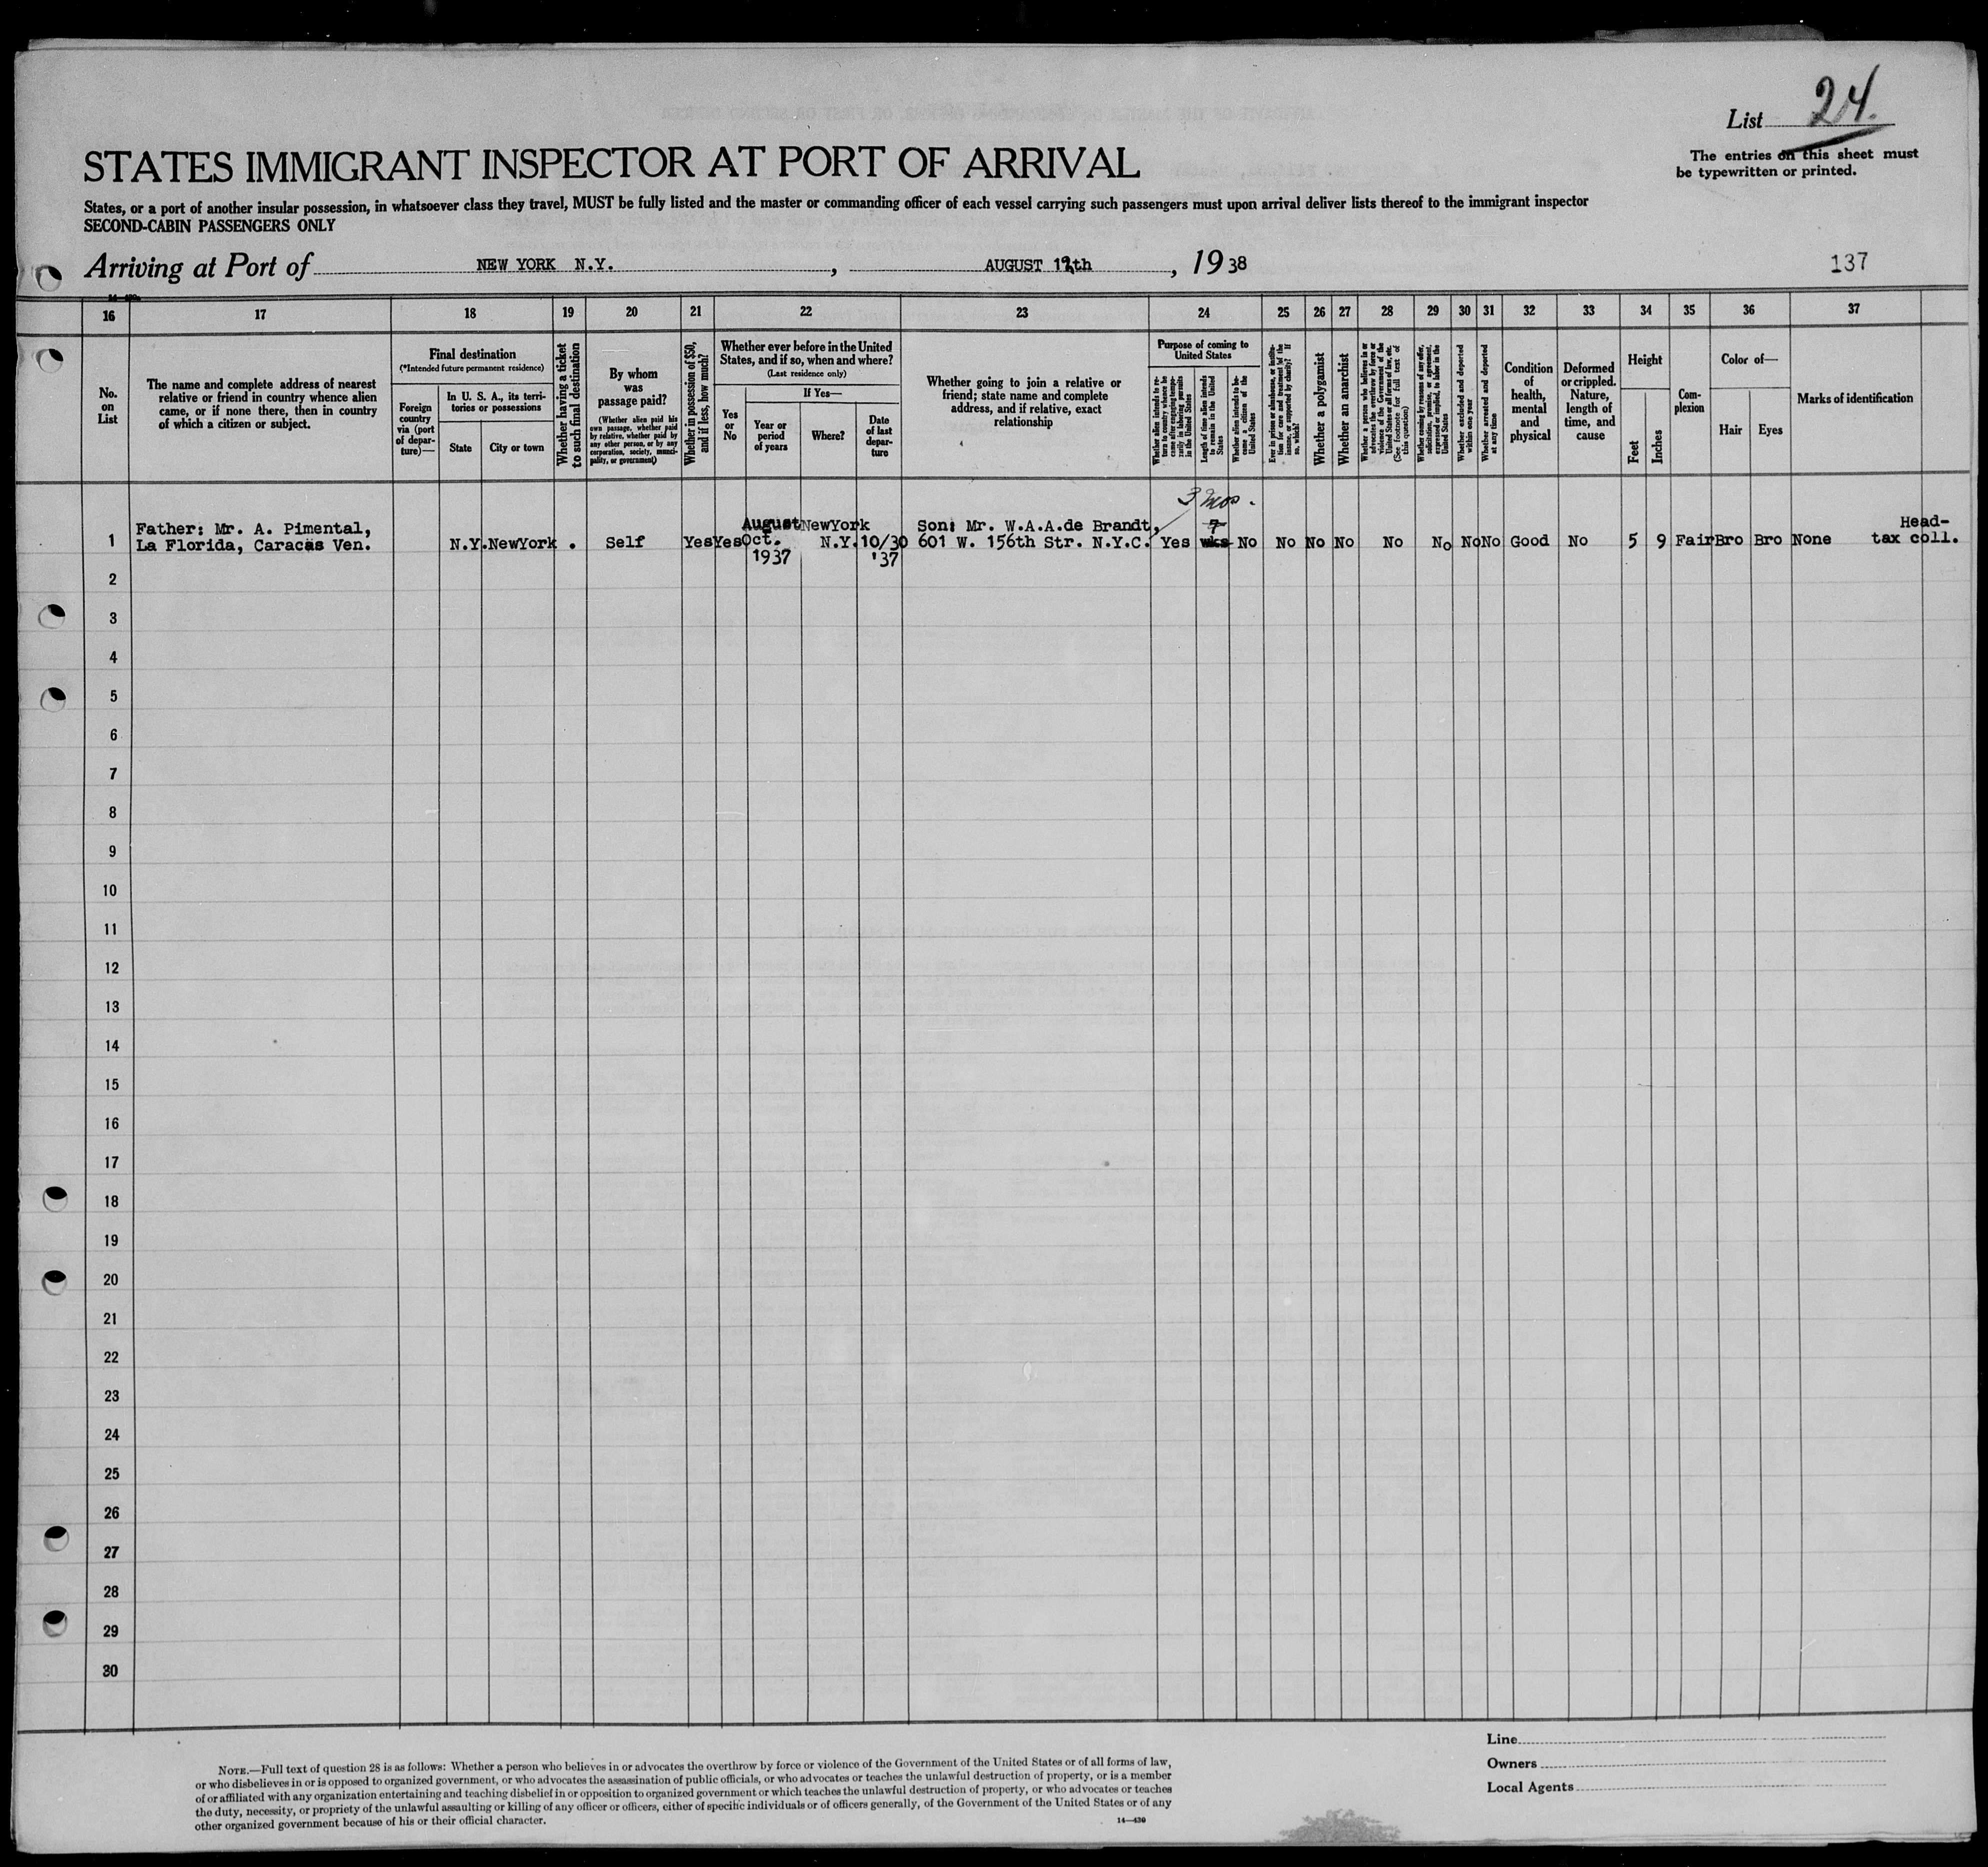 List 24.
The entries on this sheet must
be typewritten or printed.
STATES IMMIGRANT INSPECTOR AT PORT OF ARRIVAL
States, or a port of another insular possession, in whatsoever class they travel, MUST be fully listed and the master or commanding officer of each vessel carrying such passengers must upon arrival deliver lists thereof to the immigrant inspector
SECOND-CABIN PASSENGERS ONLY
Arriving at Port of NEW YORK N.Y. , AUGUST th , 1938
137
16 17 18 19 20 21 22 23 24 25 26 27 28 29 30 31 32 33 34 35 36 37
No.
on
List
The name and complete address of nearest
relative or friend in country whence alien
came, or if none there, then in country
of which a citizen or subject.
Final destination
(*Intended future permanent residence)
Foreign
country
via (port
of depar-
ture)—
In U. S. A., its terri-
tories or possessions
State
City or town
Whether having a ticket
to such final destination
By whom
was
passage paid?
(Whether alien paid his
own passage, whether paid
by relative, whether paid by
any other person, or by any
corporation, society, munici-
pality, or government)
Whether in possession of $50,
and if less, how much?
Whether ever before in the United
States, and if so, when and where?
(Last residence only)
Yes
or
No
If Yes—
Year or
period
of years
Where?
Date
of last
depar-
ture
Whether going to join a relative or
friend; state name and complete
address, and if relative, exact
relationship
Purpose of coming to
United States
Whether alien intends to re-
turn to country whence he
came after engaging tempo-
rarily in laboring pursuits
in the United States
Length of time alien intends
to remain in the United
States
Whether alien intends to be-
come a citizen of the
United States
Ever in prison or almshouse, or institu-
tion for care and treatment of the
insane, or supported by charity? If
so, which?
Whether a polygamist
Whether an anarchist
Whether a person who believes in or
advocates the overthrow by force or
violence of the Government of the
United States or all forms of law, etc.
(See footnote for full text of
this question)
Whether coming by reason of any offer,
solicitation, promise, or agreement,
expressed or implied, to labor in the
United States
Whether excluded and deported
within one year
Whether arrested and deported
at any time
Condition
of
health,
mental
and
physical
Deformed
or crippled.
Nature,
length of
time, and
cause
Height
Feet
Inches
Com-
plexion
Color of—
Hair
Eyes
Marks of identification
3 mos.
August NewYork
Father: Mr. A. Pimental,
Son: Mr. W.A.A.de Brandt,
7
Head-
1 La Florida, Caracas Ven. N.Y. NewYork . Self Yes Yes Oct. N.Y. 10/30 601 W. 156th Str. N.Y.C. Yes wks No No No No No No No No Good No 5 9 Fair Bro Bro None tax coll.
1937 '37
2
3
4
5
6
7
8
9
10
11
12
13
14
15
16
17
18
19
20
21
22
23
24
25
26
27
28
29
30
Line
Owners
Local Agents
NOTE.—Full text of question 28 is as follows: Whether a person who believes in or advocates the overthrow by force or violence of the Government of the United States or of all forms of law,
or who disbelieves in or is opposed to organized government, or who advocates the assassination of public officials, or who advocates or teaches the unlawful destruction of property, or is a member
of or affiliated with any organization entertaining and teaching disbelief in or opposition to organized government or which teaches the unlawful destruction of property, or who advocates or teaches
the duty, necessity, or propriety of the unlawful assaulting or killing of any officer or officers, either of specific individuals or of officers generally, of the Government of the United States or of any
other organized government because of his or their official character.
14—430